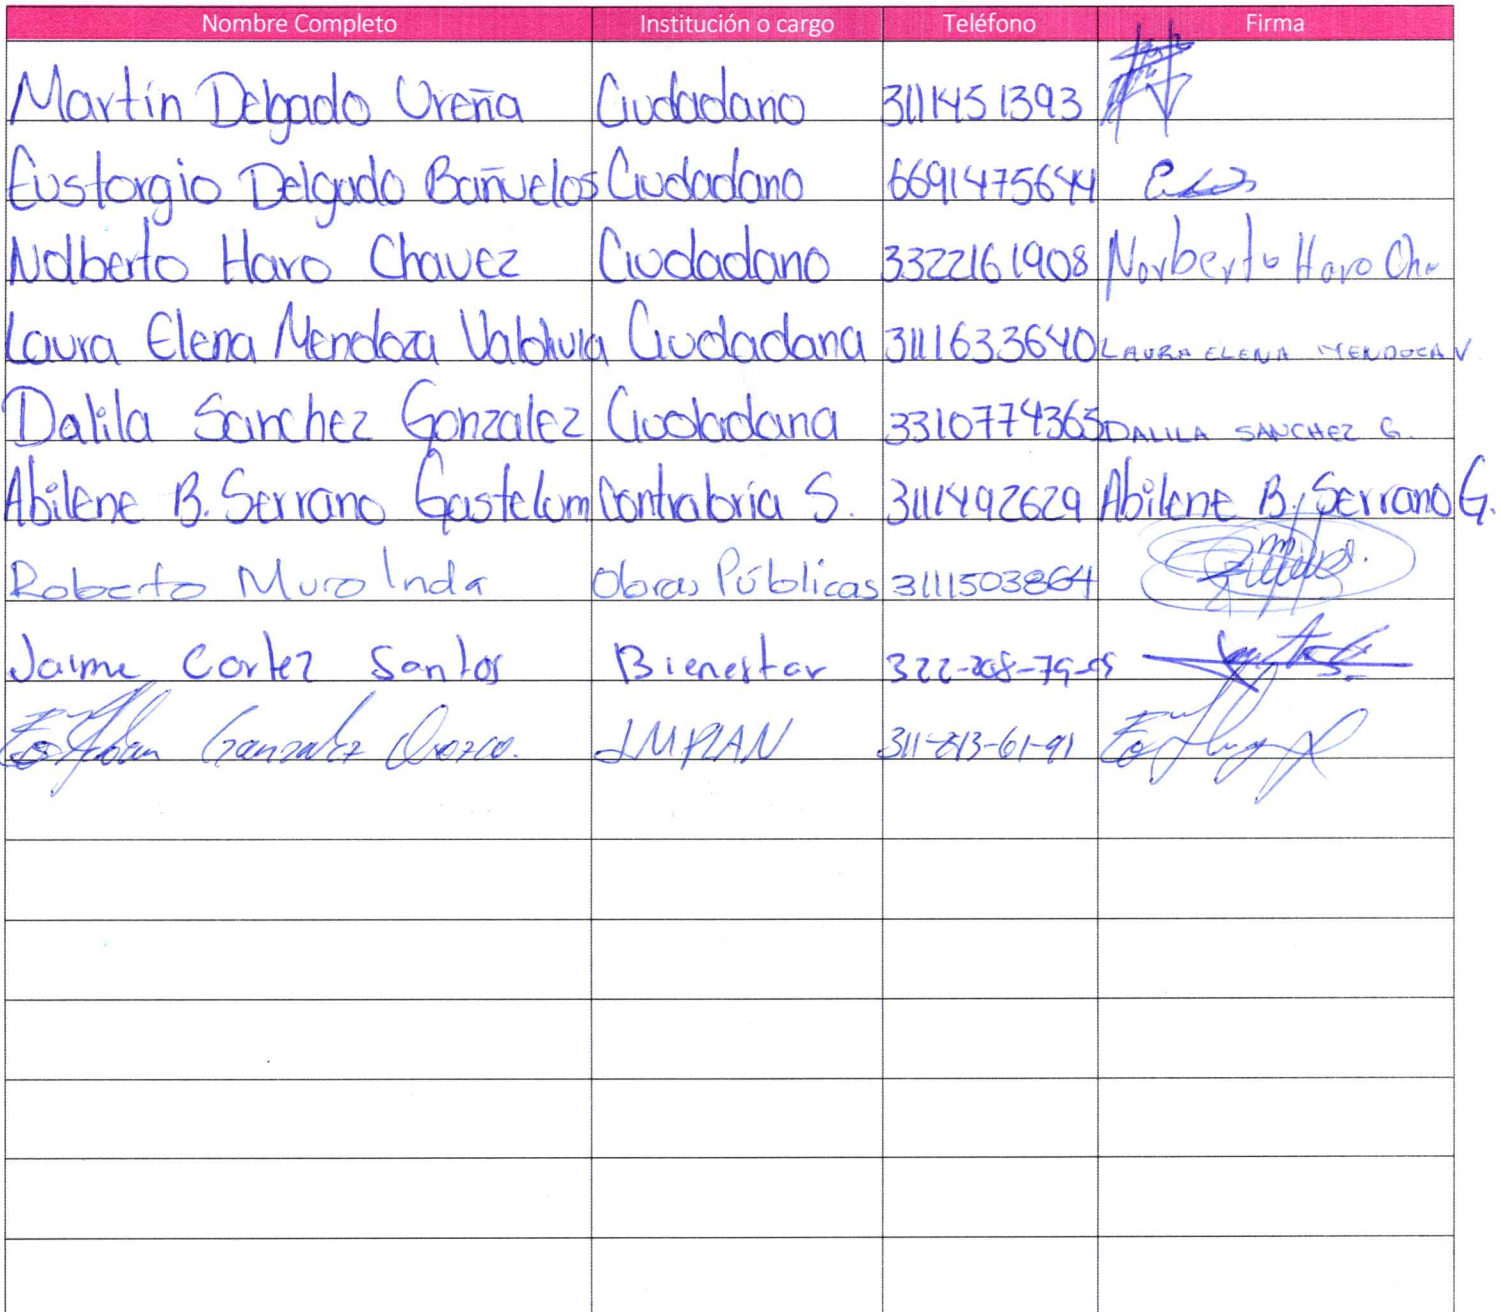 Nombre Completo Institución o cargo Teléfono Firma
Martín Delgado Ureña Ciudadano 3111451393
Eustorgio Delgado Bañuelos Ciudadano 6691475644
Nolberto Haro Chavez Ciudadano 3322161908 Norberto Haro Cha
Laura Elena Mendoza Valdivia Ciudadana 3111633640 LAURA ELENA MENDOCA V
Dalila Sanchez Gonzalez Ciudadana 3310774365 DALILA SANCHEZ G.
Abilene B. Serrano Gastelum Contraloria S. 3111492629 Abilene B. Serrano G.
Roberto Muro Inda Obras Públicas 3111503864
Jaime Cortez Santos Bienestar
Esteban Gonzalez Orozco. IMPLAN 311-813-61-91